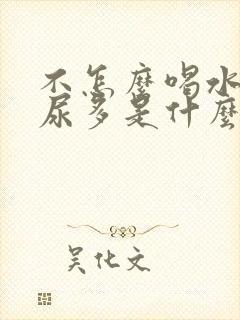 不怎麼喝水
尿多是什麼
吴化文